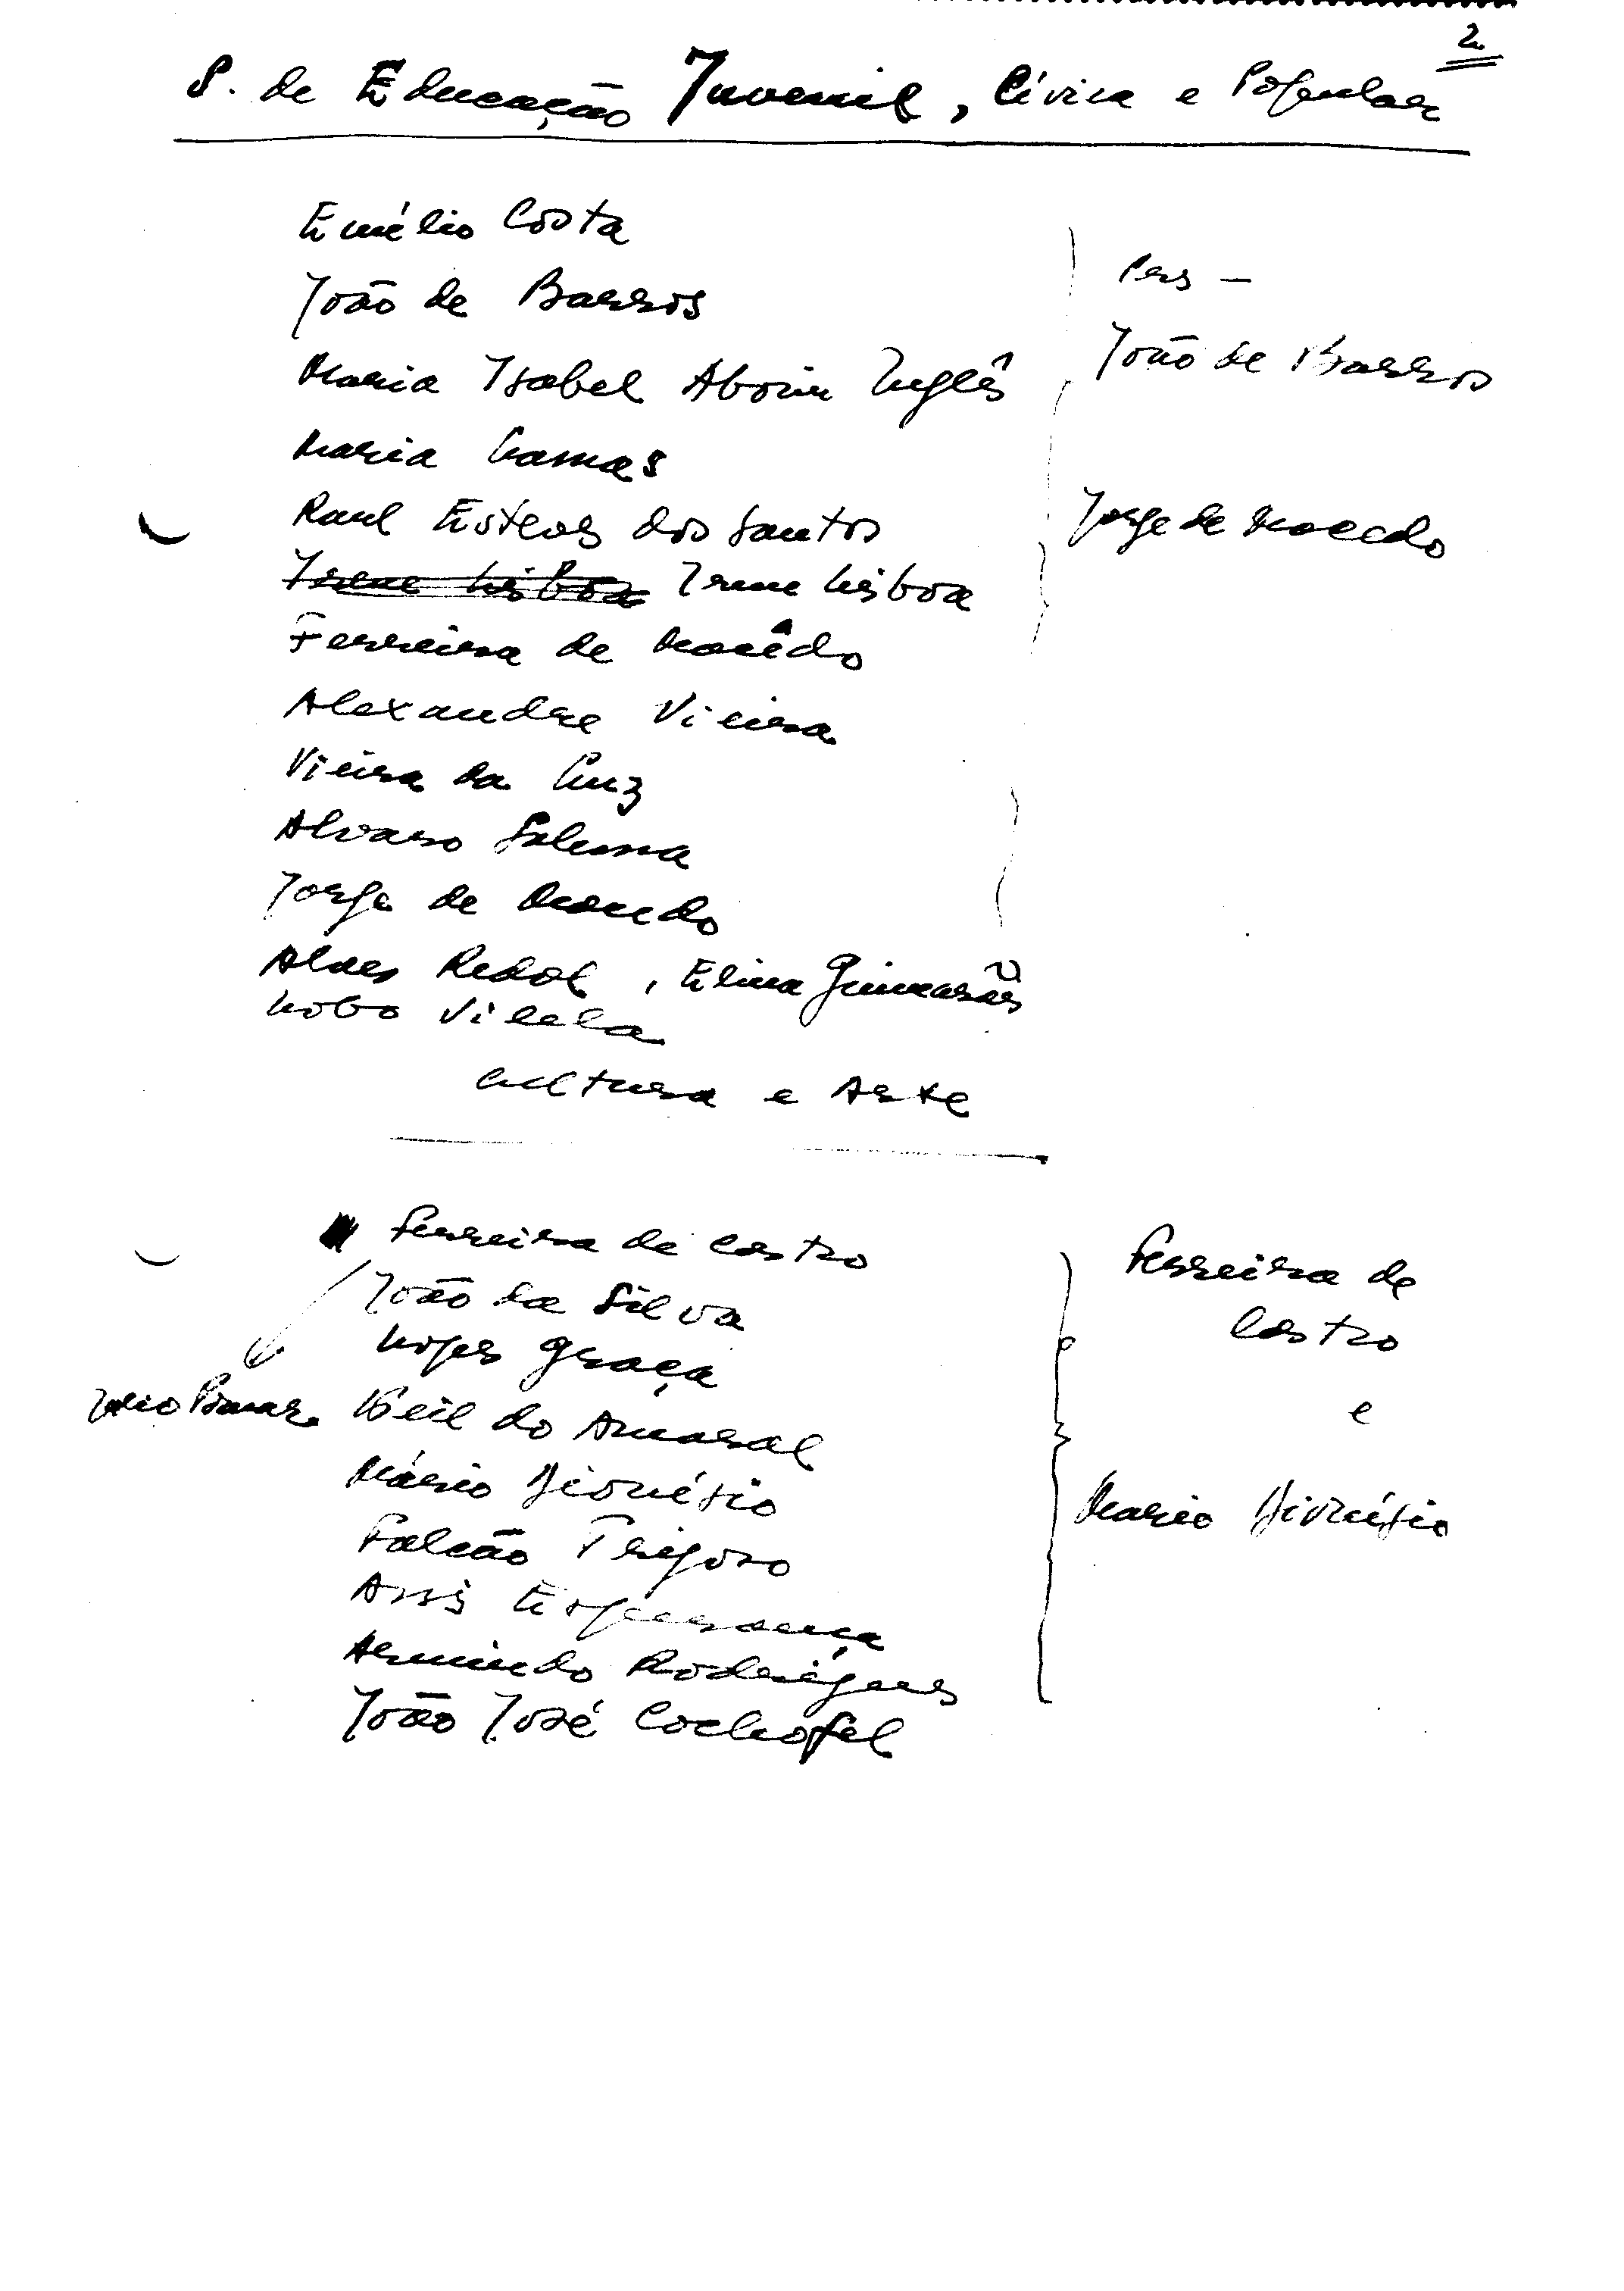 2
S. de Educação Juvenil, Cívica e Popular
Emílio Costa
João de Barros
Maria Isabel Aboim Inglês
Maria Lamas
Raul Esteves dos Santos
Irene Lisboa Irene Lisboa
Ferreira de Macêdo
Alexandre Vieira
Vieira da Luz
Alvaro Salema
Jorge de Macedo
Alves Redol, Elina Guimarães
Lobo Vilela
João de Barros
Jorge de Macedo
Cultura e Arte
Ferreira de Castro
João da Silva
Lopes Graça
Keil do Amaral
Mário Dionísio
Falcão Trigoso
Assis Esperança
Armindo Rodrigues
João José Cochofel
Júlio Pomar
Ferreira de
Castro
e
Mario Dionísio